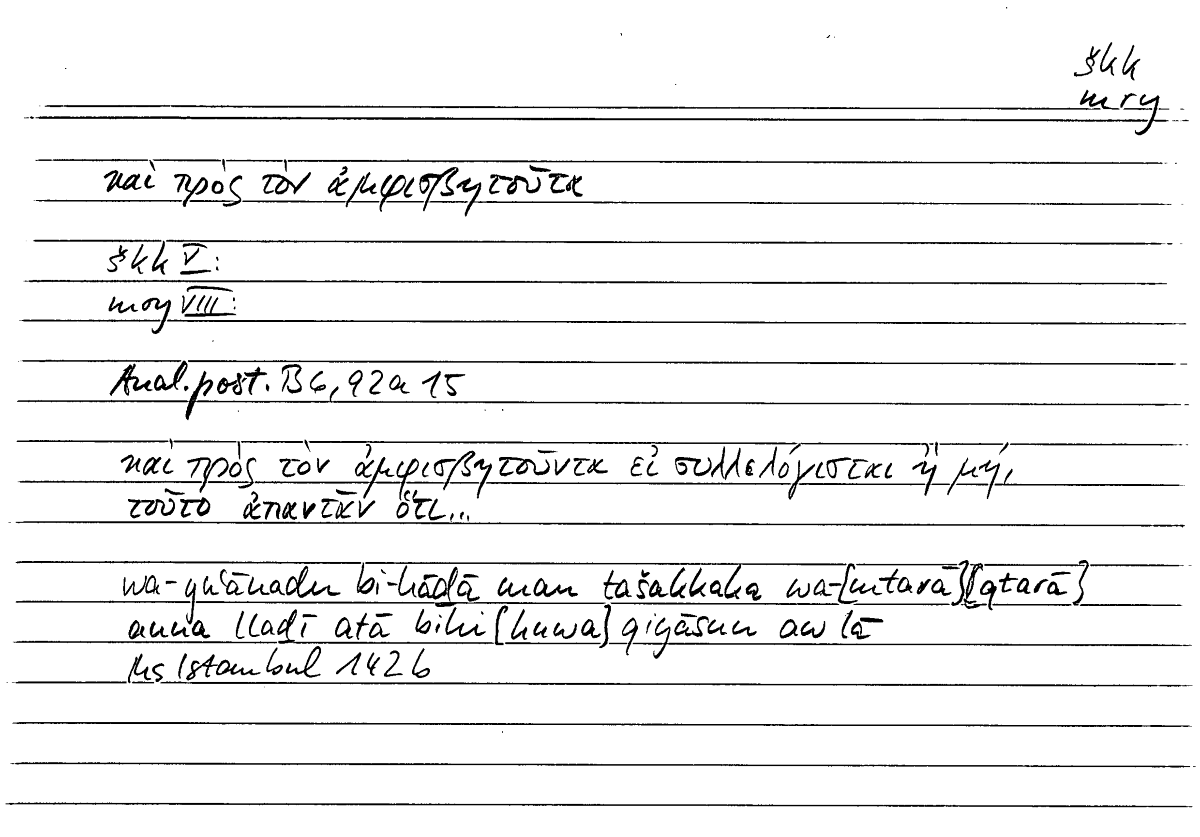 škk
mry
καὶ πρὸς τὸν ἀμφισβητοῦτα
škk V:
mry VIII:
Anal.post. B6, 92a 15
καὶ πρὸς τὸν ἀμφισβητοῦντα εἰ συλλελόγισται ἢ μή,
τοῦτο ἀπαντᾶν ὅτι...
wa-yuʿānadu bi-hāḏā man tašakkaka wa-[mtarā][qtarā]
anna lladī atā bihi [huwa] qiyāsun aw lā
Ms Istambul 142b